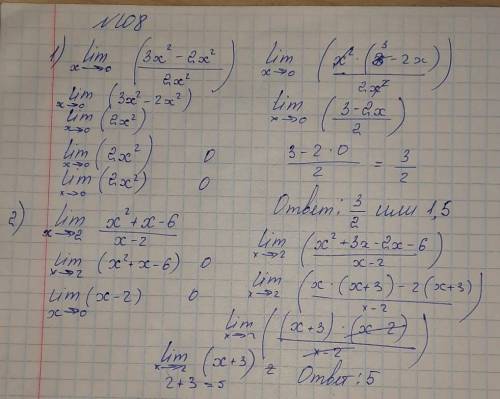 №108
1) lim x→0 (3x² - 2x² / 2x²)
lim x→0 (3x² - 2x²)
lim x→0 (2x²)
lim x→0 (2x²) 0
lim x→0 (2x²) 0
lim x→0 (x² · (3 - 2x) / 2x²)
lim x→0 (3 - 2x / 2)
3 - 2 · 0 / 2 = 3/2
Ответ: 3/2 или 1,5
2) lim x→2 x² + x - 6 / x - 2
lim x→2 (x² + x - 6) 0
lim x→0 (x - 2) 0
lim x→2 (x² + 3x - 2x - 6 / x - 2)
lim x→2 (x · (x + 3) - 2 (x + 3) / x - 2)
lim x→2 ((x + 3) · (x - 2) / x - 2)
lim x→2 (x + 3) =
2 + 3 = 5
Ответ: 5